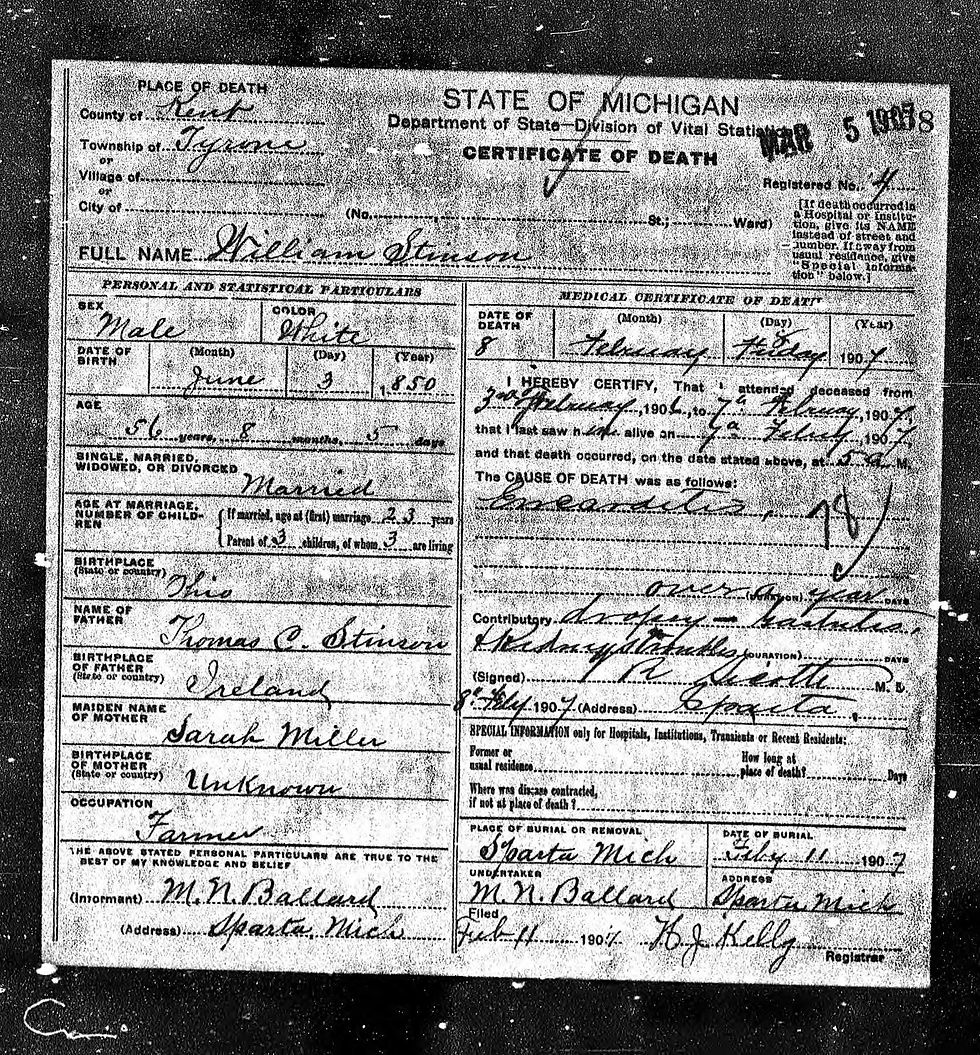 PLACE OF DEATH
County of Kent
Township of Tyrone
or
Village of
or
City of
STATE OF MICHIGAN
Department of State—Division of Vital Statistics
CERTIFICATE OF DEATH
MAR 5 1907
Registered No. 4
(No. St.; Ward)
[If death occurred in
a Hospital or Institu-
tion, give its NAME
instead of street and
number. If away from
usual residence, give
"Special Informa-
tion" below.]
FULL NAME William Stinson
PERSONAL AND STATISTICAL PARTICULARS
SEX
Male
COLOR
White
DATE OF
BIRTH
(Month) (Day) (Year)
June 3 1850
AGE
56 years, 8 months, 5 days
SINGLE, MARRIED,
WIDOWED, OR DIVORCED
Married
AGE AT MARRIAGE,
NUMBER OF CHILD-
REN
If married, age at (first) marriage 23 years
Parent of 3 children, of whom 3 are living
BIRTHPLACE
(State or country)
Ohio
NAME OF
FATHER
Thomas C. Stinson
BIRTHPLACE
OF FATHER
(State or country)
Ireland
MAIDEN NAME
OF MOTHER
Sarah Miller
BIRTHPLACE
OF MOTHER
(State or country)
Unknown
OCCUPATION
Farmer
THE ABOVE STATED PERSONAL PARTICULARS ARE TRUE TO THE
BEST OF MY KNOWLEDGE AND BELIEF
(Informant) M. N. Ballard
(Address) Sparta, Mich
MEDICAL CERTIFICATE OF DEATH
DATE OF
DEATH
8
(Month) (Day) (Year)
February Friday 1907
I HEREBY CERTIFY, That I attended deceased from
February, 190 , to 7th February, 1907,
that I last saw him alive on 7th 1907
and that death occurred, on the date stated above, at 5 a M.
The CAUSE OF DEATH was as follows:
78
over a year
(DURATION) DAYS
Contributory dropsy
Kidney (DURATION) DAYS
(Signed) R M. D.
8th 1907 (Address) Sparta,
SPECIAL INFORMATION only for Hospitals, Institutions, Transients or Recent Residents:
Former or
usual residence
How long at
place of death? Days
Where was disease contracted,
if not at place of death?
PLACE OF BURIAL OR REMOVAL
Sparta Mich
DATE OF BURIAL
Feby 11 1907
UNDERTAKER
M. N. Ballard
ADDRESS
Sparta Mich
Filed
Feb 11 1907 H J Kelly
Registrar